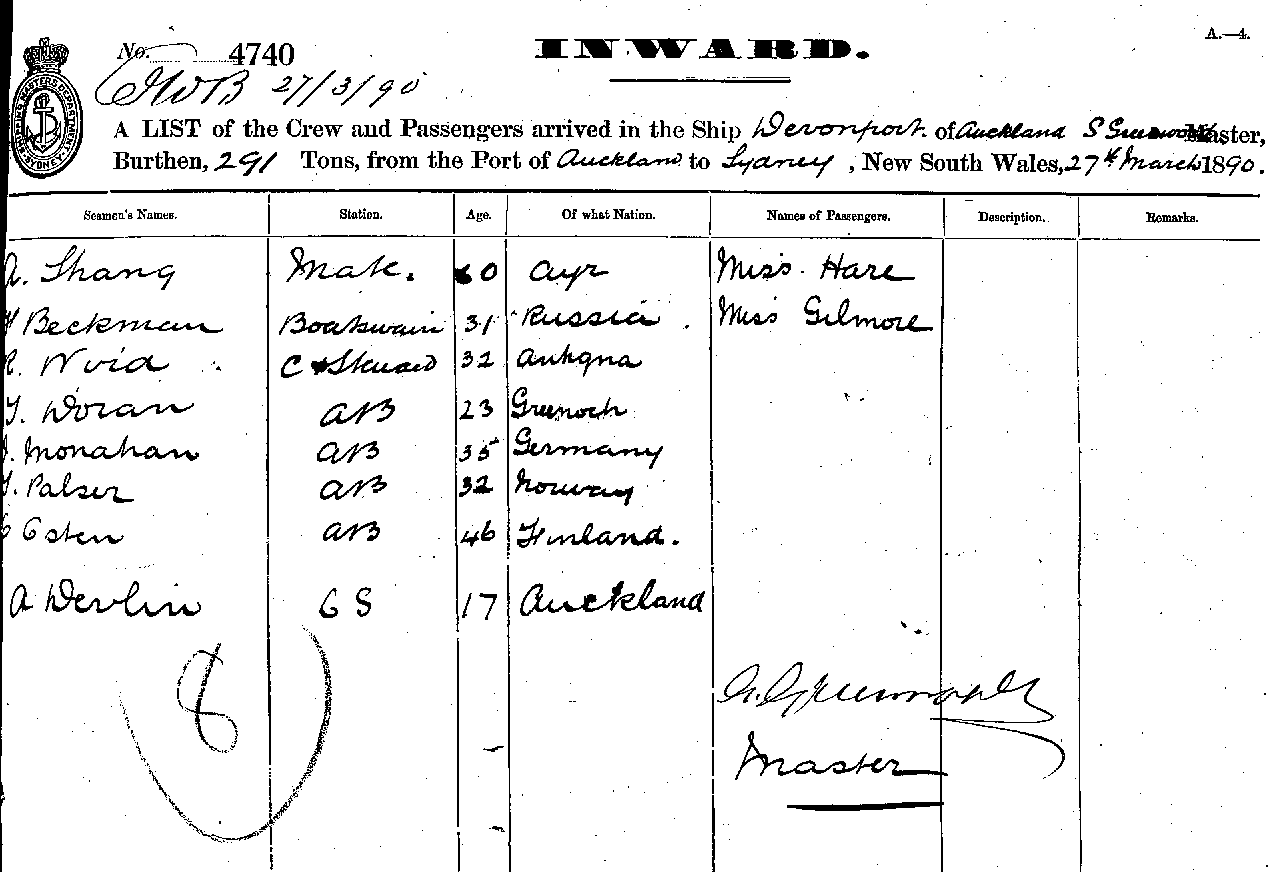 A.—4.
No. 4740 INWARD.
27/3/90
A LIST of the Crew and Passengers arrived in the Ship Devonport of Auckland S Greenwood Master,
Burthen, 291 Tons, from the Port of Auckland to Sydney, New South Wales, 27th March 1890.
Seamen's Names. Station. Age. Of what Nation. Names of Passengers. Description. Remarks.
A. Shang Mate. 60 Ayr Miss Hare
Beckman Boatswain 31 Russia. Miss Gilmore
R. Woid C & Steward 32 Antigua
T. Doran AB 23 Greenoch
J. Monahan AB 35 Germany
T. Palser AB 32 Norway
Osten AB 46 Finland.
A Devlin OS 17 Auckland
8
S. Greenwood
Master